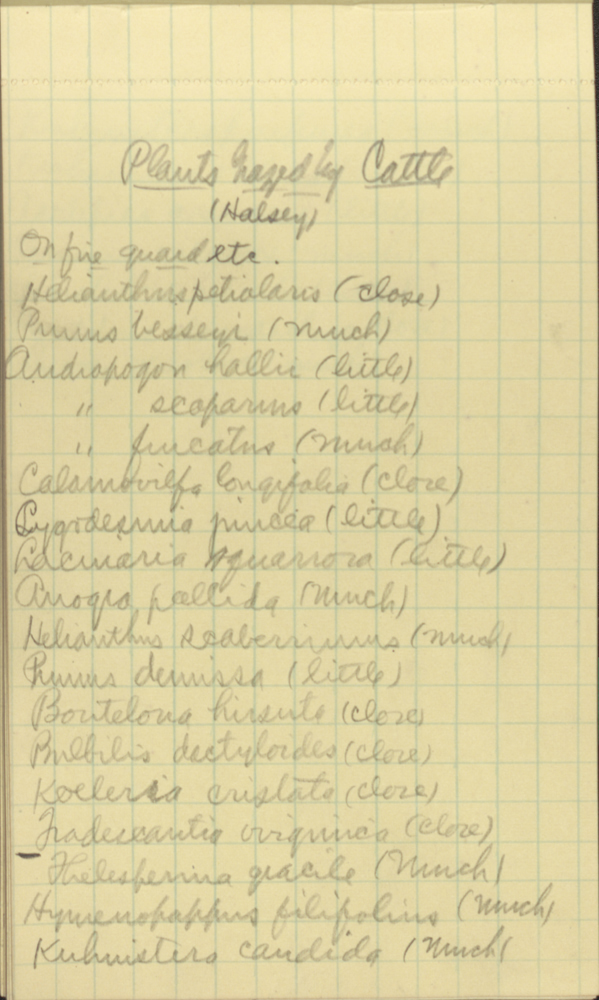 Plants Grazed by Cattle
(Halsey)
On fire guard etc.
Helianthus petiolaris (close)
Prunus besseyi (much)
Andropogon hallii (little)
" scoparius (little)
" furcatus (much)
Calamovilfa longifolia (close)
Lygodesmia juncea (little)
Lacinaria squarrosa (little)
Anogra pallida (much)
Helianthus scaberrimus (much)
Prunus demissa (little)
Bouteloua hirsuta (close)
Bulbilis dactyloides (close)
Koeleria cristata (close)
Tradescantia virginica (close)
Thelesperma gracile (much)
Hymenopappus filifolius (much)
Kuhnistera candida (much)